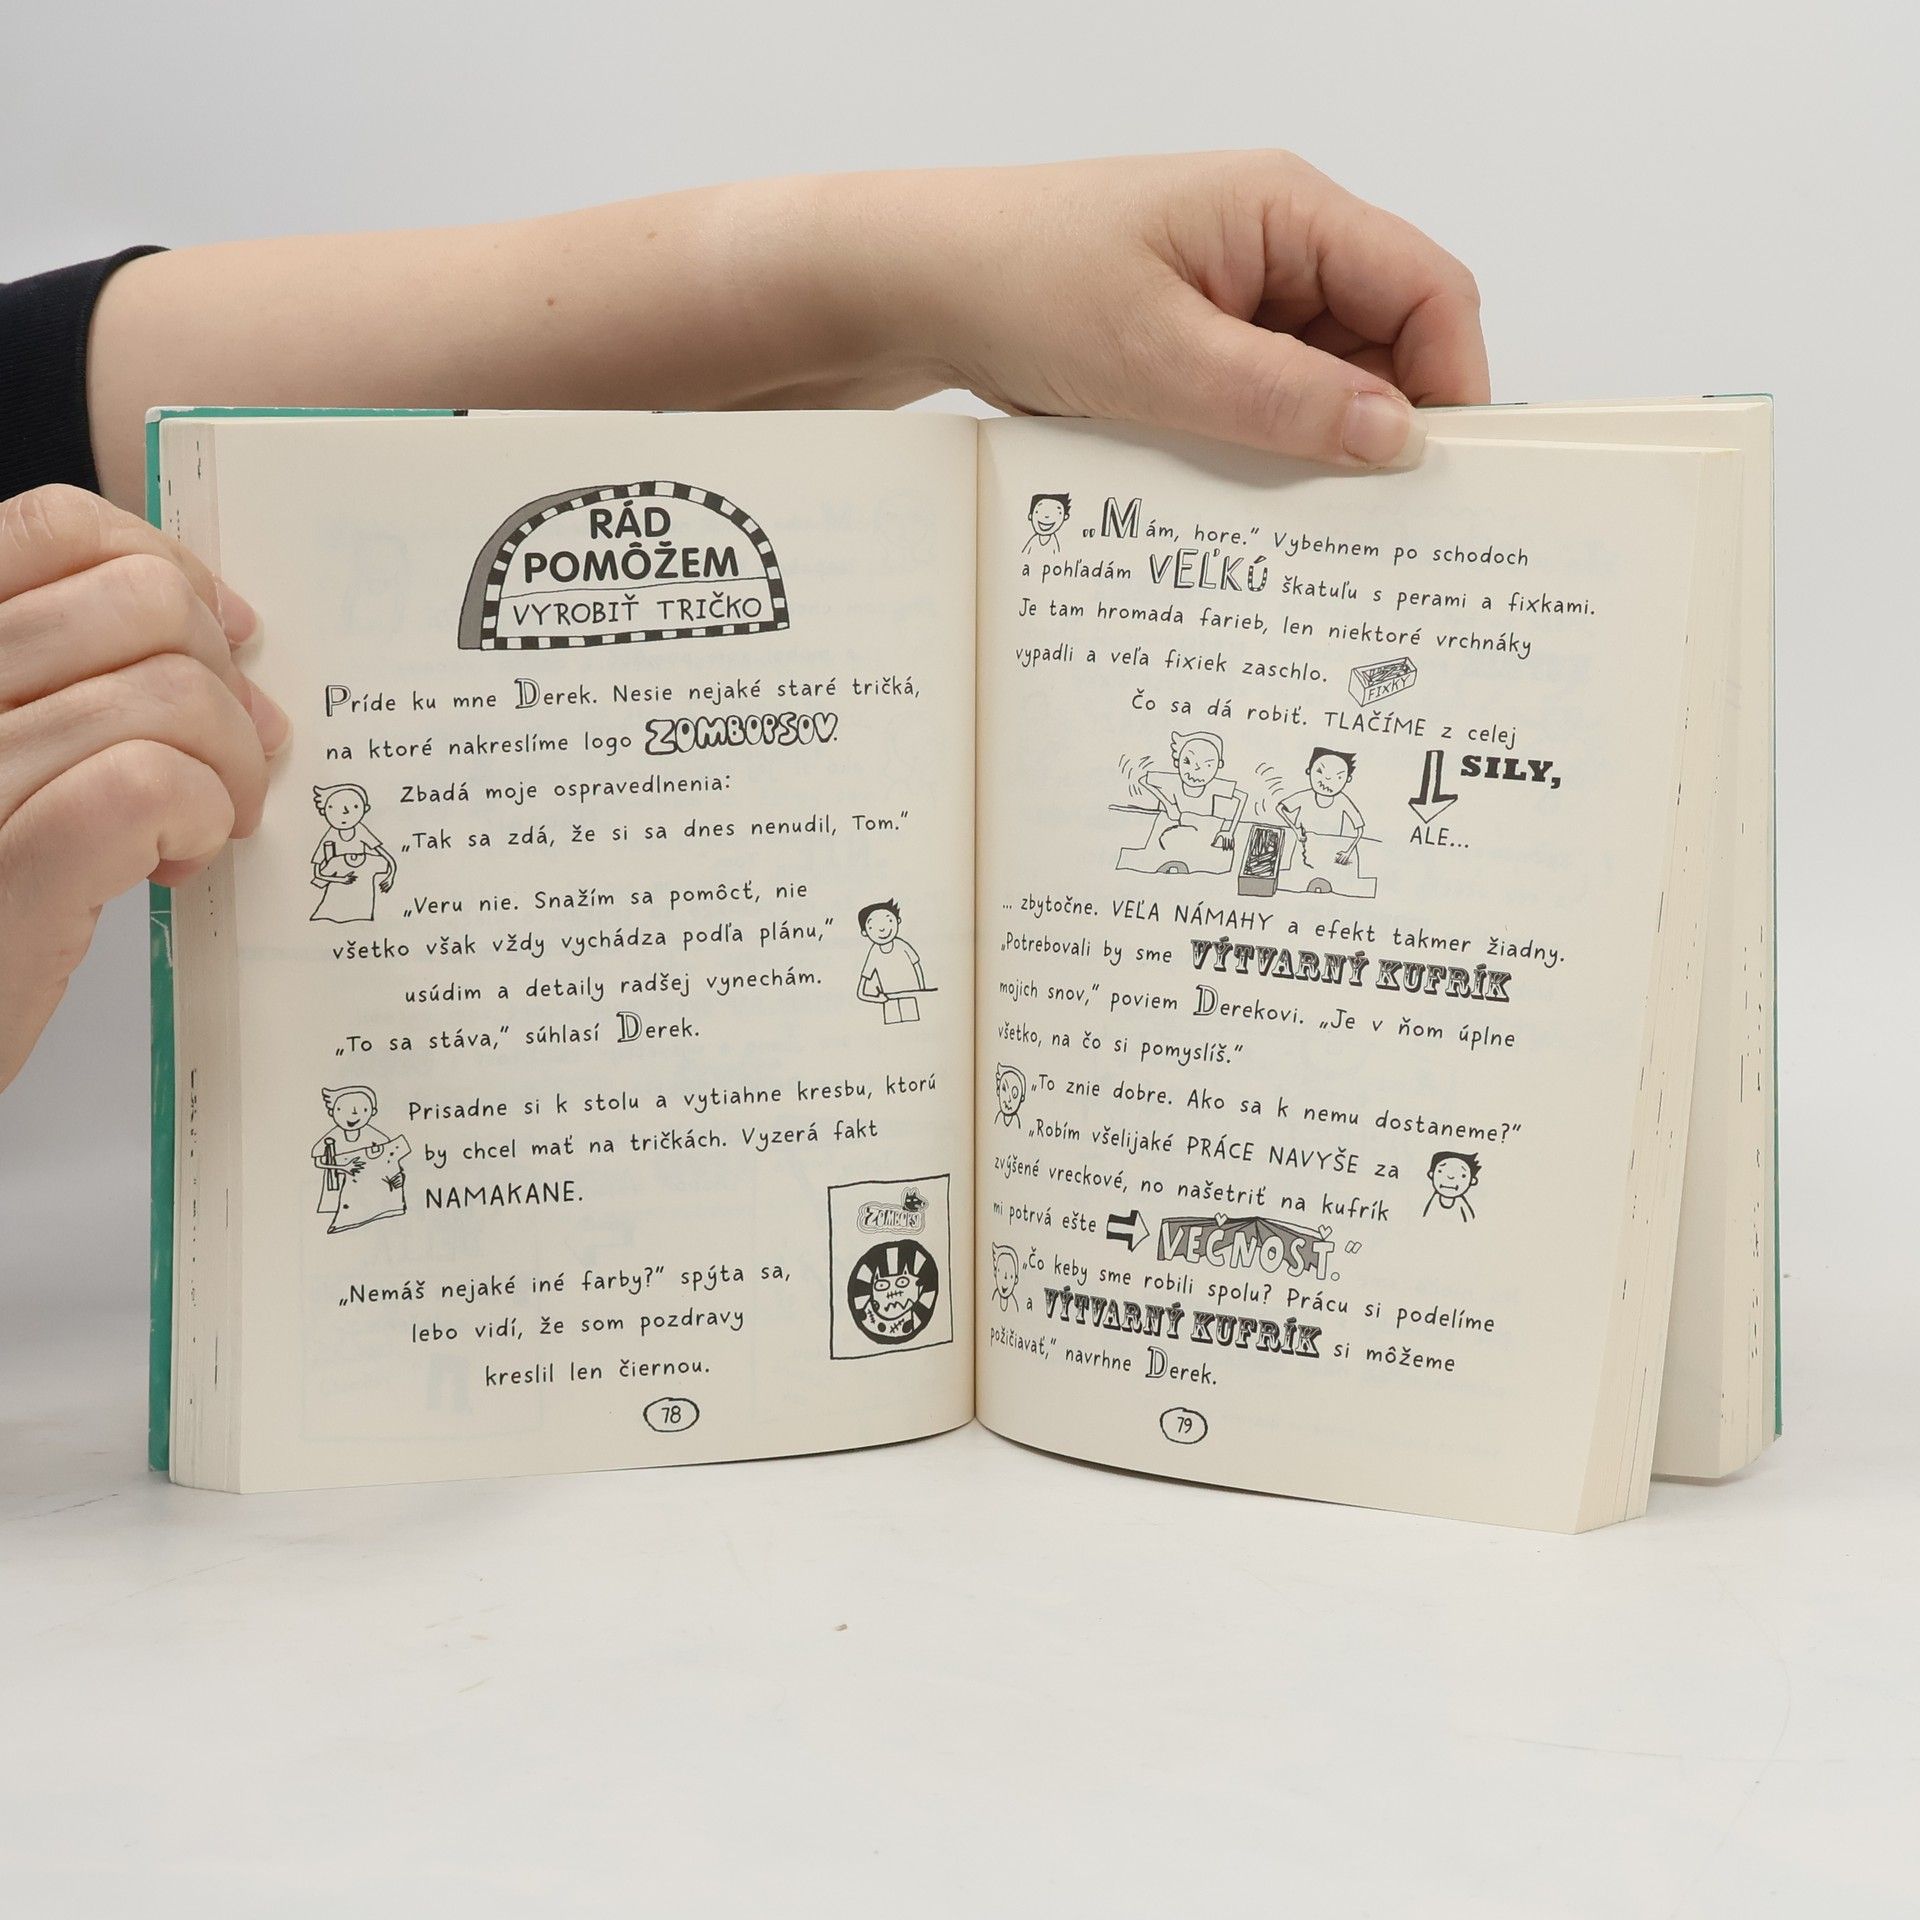 RÁD
POMÔŽEM
VYROBIŤ TRIČKO
Príde ku mne Derek. Nesie nejaké staré tričká,
na ktoré nakreslíme logo ZOMBOPSOV.
Zbadá moje ospravedlnenia:
„Tak sa zdá, že si sa dnes nenudil, Tom.“
„Veru nie. Snažím sa pomôcť, nie
všetko však vždy vychádza podľa plánu,“
usúdim a detaily radšej vynechám.
„To sa stáva,“ súhlasí Derek.
Prisadne si k stolu a vytiahne kresbu, ktorú
by chcel mať na tričkách. Vyzerá fakt
NAMAKANE.
ZOMBOPSI
„Nemáš nejaké iné farby?“ spýta sa,
lebo vidí, že som pozdravy
kreslil len čiernou.
78
„Mám, hore.“ Vybehnem po schodoch
a pohľadám VEĽKÚ škatuľu s perami a fixkami.
Je tam hromada farieb, len niektoré vrchnáky
vypadli a veľa fixiek zaschlo.
FIXKY
Čo sa dá robiť. TLAČÍME z celej
SILY,
ALE...
... zbytočne. VEĽA NÁMAHY a efekt takmer žiadny.
„Potrebovali by sme VÝTVARNÝ KUFRÍK
mojich snov,“ poviem Derekovi. „Je v ňom úplne
všetko, na čo si pomyslíš.“
„To znie dobre. Ako sa k nemu dostaneme?“
„Robím všelijaké PRÁCE NAVYŠE za
zvýšené vreckové, no našetriť na kufrík
mi potrvá ešte VEČNOSŤ.“
„Čo keby sme robili spolu? Prácu si podelíme
a VÝTVARNÝ KUFRÍK si môžeme
požičiavať,“ navrhne Derek.
79